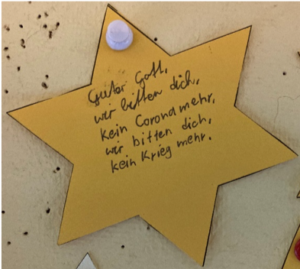 Guter Gott,
wir bitten dich,
kein Corona mehr,
wir bitten dich,
kein Krieg mehr.